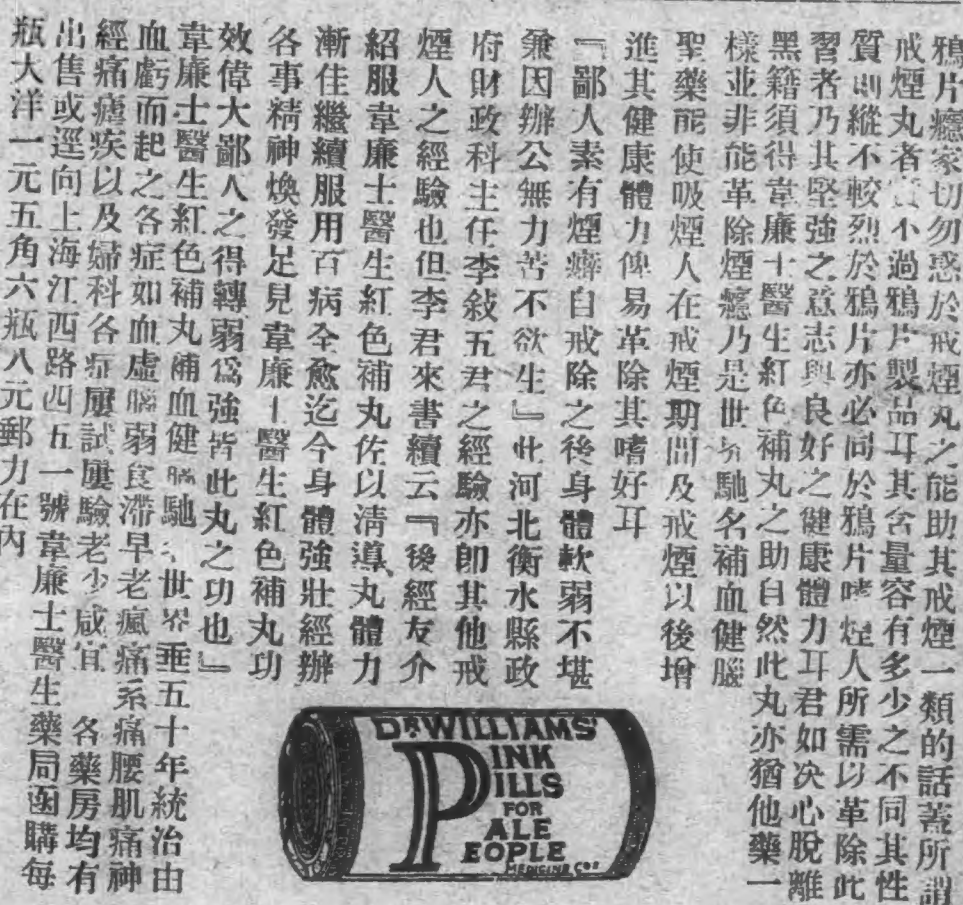 鴉片癮家切勿惑於戒煙丸之能助其戒煙一類的話蓋所謂
戒煙丸者實不過鴉片製品耳其含量容有多少之不同其性
質則縱不較烈於鴉片亦必同於鴉片嗜煙人所需以革除此
習者乃其堅強之意志與良好之健康體力耳君如決心脫離
黑籍須得韋廉士醫生紅色補丸之助自然此丸亦猶他藥一
樣並非能革除煙癮乃是世界馳名補血健腦
聖藥能使吸煙人在戒煙期間及戒煙以後增
進其健康體力俾易革除其嗜好耳
『鄙人素有煙癖自戒除之後身體軟弱不堪
兼因辦公無力苦不欲生』此河北衡水縣政
府財政科主任李敍五君之經驗亦卽其他戒
煙人之經驗也但李君來書續云『後經友介
紹服韋廉士醫生紅色補丸佐以淸導丸體力
漸佳繼續服用百病全愈迄今身體強壯經辦
各事精神煥發足見韋廉士醫生紅色補丸功
效偉大鄙人之得轉弱爲強皆此丸之功也』
韋廉士醫生紅色補丸補血健腦馳名世界垂五十年統治由
血虧而起之各症如血虛腦弱食滯早老瘋痛系痛腰肌痛神
經痛瘧疾以及婦科各症屢試屢驗老少咸宜 各藥房均有
出售或逕向上海江西路四五一號韋廉士醫生藥局函購每
瓶大洋一元五角六瓶八元郵力在內
DR WILLIAMS'
PINK
PILLS
FOR
PALE
PEOPLE
MEDICINE Co